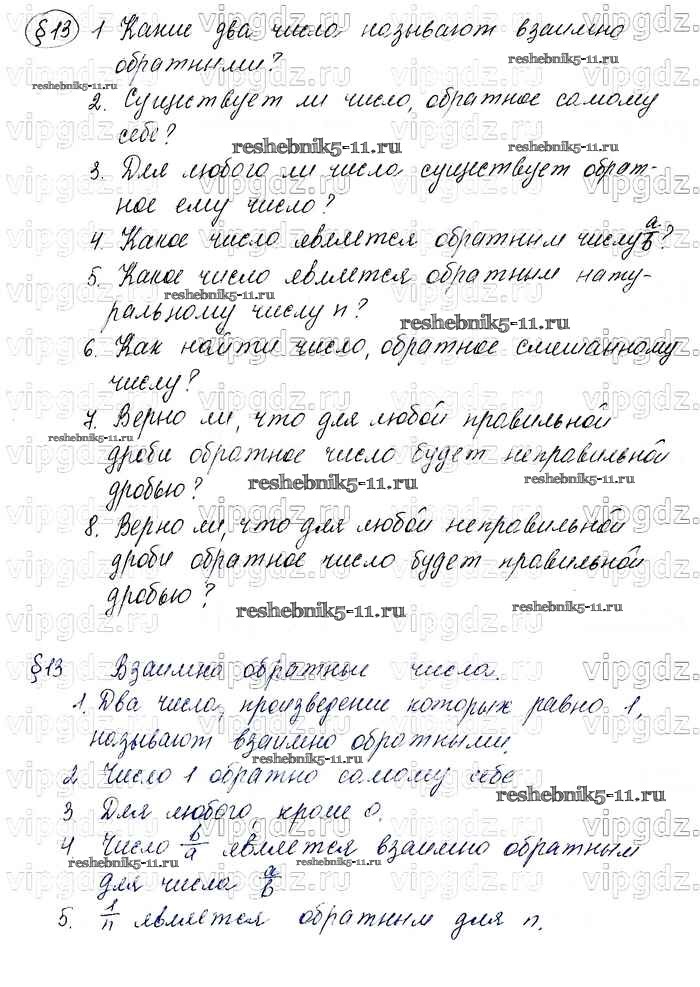 §13 1 Какие два числа называют взаимно
обратными?
2. Существует ли число, обратное самому
себе?
3. Для любого ли числа существует обрат-
ное ему число?
4. Какое число является обратным числу a/b?
5. Какое число является обратным нату-
ральному числу n?
6. Как найти число, обратное смешанному
числу?
7. Верно ли, что для любой правильной
дроби обратное число будет неправильной
дробью?
8. Верно ли, что для любой неправильной
дроби обратное число будет правильной
дробью?
§13 Взаимно обратные числа.
1. Два числа, произведение которых равно 1,
называют взаимно обратными.
2. Число 1 обратно самому себе
3 Для любого, кроме 0.
4 Число b/a является взаимно обратным
для числа a/b
5. 1/n является обратным для n.